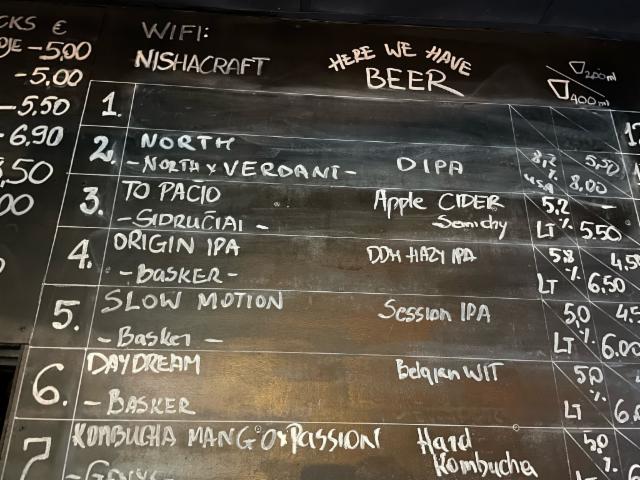 CKS €
WIFI:
NISHACRAFT
HERE WE HAVE
BEER
200 ml
400 ml
-5,00
-5,00
-5,50
-6,90
,50
00
1.
2. NORTH 8,2 % 5,50
-NORTH x VERDANT- DIPA USA 8,00
3. TO PACIO Apple CIDER 5,2 % -
-SIDRUČIAI- Semidry LT 5.50
4. ORIGIN IPA DDH HAZY IPA 5,8 % 4,50
-BASKER- LT 6.50
5. SLOW MOTION Session IPA 5,0 % 4,5
-Basker- LT 6.00
6. DAYDREAM Belgian WIT 5,0 %
-BASKER LT 6,0
7 KOMBUCHA MANGO x PASSION Hard 5,0 %
Kombucha